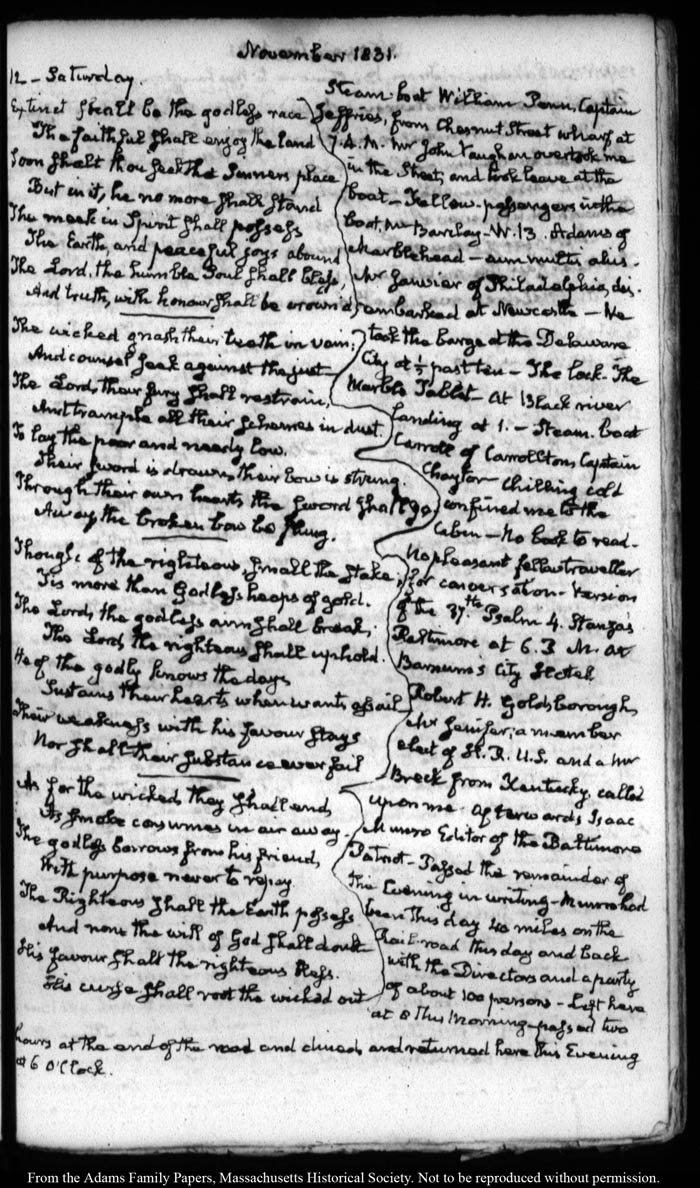 November 1831.
12 - Saturday.
Extinct shall be the godless race
The faithful shall enjoy the land
Soon shalt thou seek the Sinners place
But in it, he no more shall stand
The meek in Spirit shall possess
The Earth, and peaceful joys abound
The Lord, the humble Soul shall bless,
And truth, with honour shall be crown'd
The wicked gnash their teeth in vain;
And counsel seek against the just
The Lord, their fury shall restrain,
And trample all their schemes in dust.
To lay the poor and needy low.
Their sword is drawn, their bow is strung.
Through their own hearts the sword shall go,
Away the broken bow be flung.
Though of the righteous, small the stake,
Tis more than Godless heaps of gold.
The Lord, the godless arm shall break;
The Lord, the righteous shall uphold.
He of the godly knows the days
Sustains their hearts when wants assail
Their weakness with his favour stays
Nor shall their substance ever fail
As for the wicked, they shall end,
As smoke consumes in air away.
The godless borrows from his friend,
With purpose never to repay.
The Righteous shall the Earth possess
And none the will of God shall doubt
His favour shall the righteous bless.
His curse shall root the wicked out
Steam-boat William Penn, Captain
Jeffries, from Chesnut Street wharf at
7. A.M. Mr John Vaughan overtook me
in the Street, and took leave at the
boat - Fellow-passengers in the
boat, Mr Barclay - W. 13. Adams of
Marblehead - cum multis aliis.
Mr Janvier of Philadelphia,
embarked at Newcastle - We
took the barge at the Delaware
City at ½ past ten - The lock - The
Marble Tablet - At Black river
landing at 1. - Steam-boat
Carroll of Carrollton, Captain
Chaytor chilling cold
confined me to the
Cabin - No book to read -
No pleasant fellow traveller
for conversation - Version
of the 37th Psalm 4. Stanzas
Baltimore at 6. P.M. at
Barnum's City Hotel
Robert H. Goldsborough,
Mr Jenifer; a member
elect of H. R. U.S. and a Mr
Breck from Kentucky, called
upon me. Afterwards Isaac
Munro Editor of the Baltimore
Patriot - Passed the remainder of
the Evening in writing - Munro had
been this day 40 miles on the
Rail-road this day and back
with the Directors and a party
of about 100 persons - Left here
at 8 this Morning - passed two
hours at the end of the road and dined, and returned here this Evening
at 6 O'Clock.
From the Adams Family Papers, Massachusetts Historical Society. Not to be reproduced without permission.